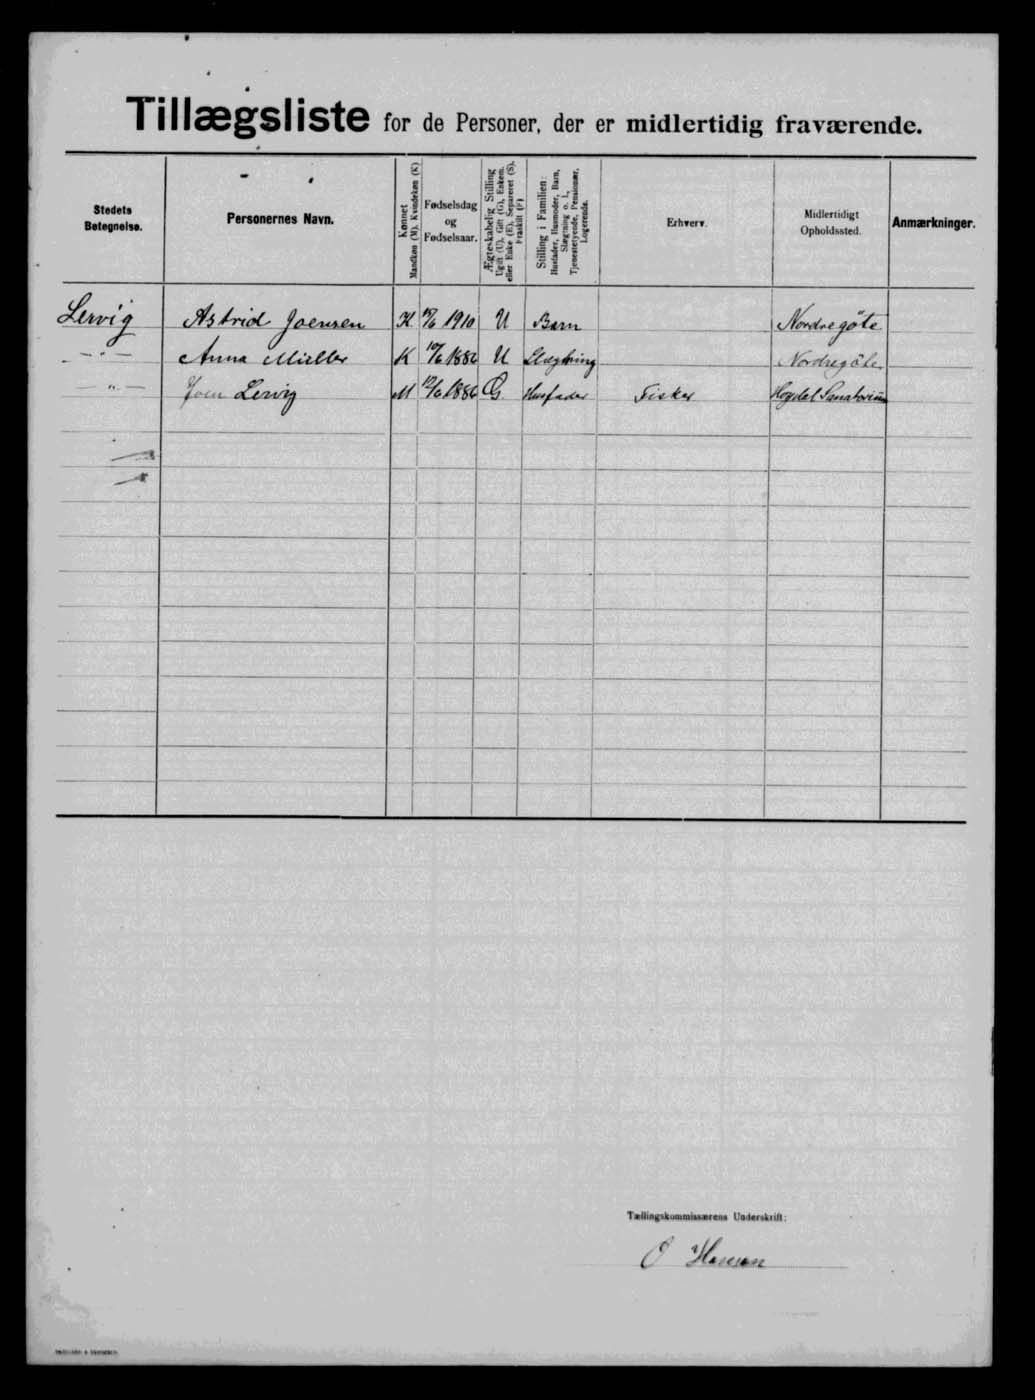 Tillægsliste for de Personer, der er midlertidig fraværende.
Stedets Betegnelse.
Personernes Navn.
Kønnet
Mandkøn (M). Kvindekøn (K)
Fødselsdag og Fødselsaar.
Ægteskabelig Stilling
Ugift (U), Gift (G), Enkem. eller Enke (E), Separeret (S), Fraskilt (F)
Stilling i Familien:
Husfader, Husmoder, Barn, Slægtning o. l., Tjenestetyende, Pensionær, Logerende.
Erhverv.
Midlertidigt Opholdssted.
Anmærkninger.
Lervig Astrid Joensen K 1910 U Barn Nordregöte
— " — Anna Müller K 1882 U Slægtning Nordregöte
— " — Joen Lervig M 12/6 1886 G. Husfader Fisker Hoydal Sanatorium
Tællingskommissærens Underskrift:
O Hansen